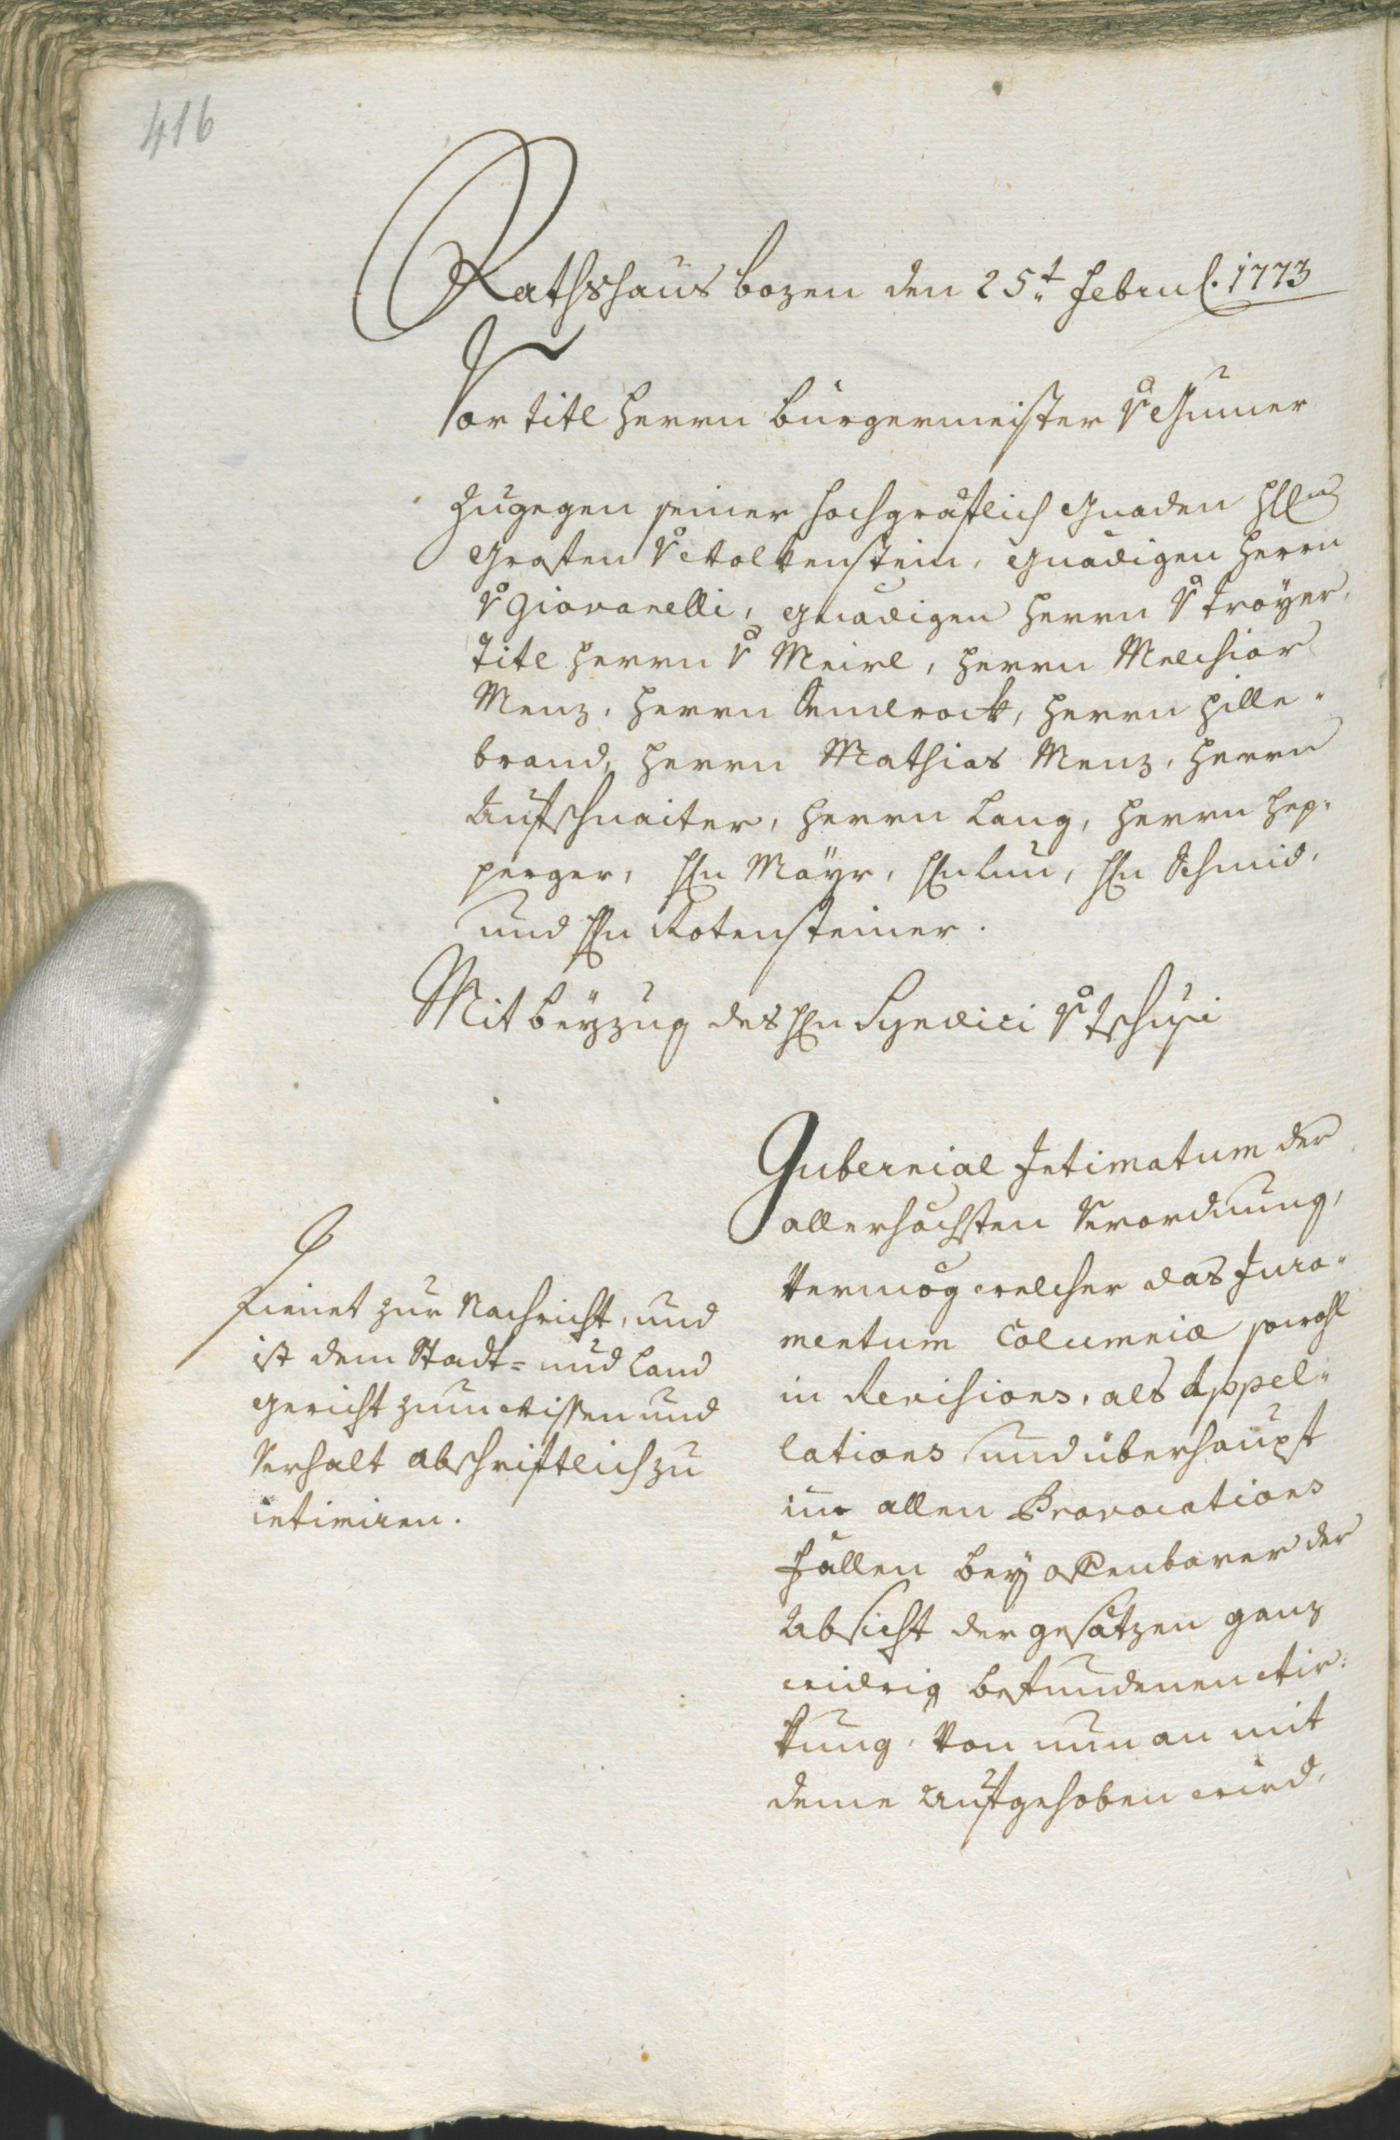 416
Rathshaus Bozen den 25.t Februl. 1773
Vor titl Herrn Burgermeister v Gumer
Zugegen seiner hochgräflich Gnaden HHn
Grafen v Wolkenstein, Gnädigen Herrn
v Giovanelli, gnädigen Herrn v Troÿer,
Titl Herrn v Meirl, Herrn Melchior
Menz, Herrn Gumerock, Herrn Hille-
brand, Herrn Mathias Menz, Herrn
Aufschnaiter, Herrn Lang, Herrn Hep-
perger, Hn Maÿr, Hn Lun, Hn Schmid,
und Hn Rotensteiner.
Mit beÿzug des Hn Syndici v Tschusi
Gubernial Intimatum der
allerhöchsten Verordnung,
vermög welcher das Jura-
mentum Calumniæ sowohl
in Revisions, als Appel-
lations und überhaupt
in allen Provocations
Fällen beÿ offenbarer der
Absicht der gesätzen ganz
widrig befundenen Wir-
kung, von nun an mit
deme aufgehoben wird,
Dienet zur Nachricht, und
ist dem Stadt- und Land
gericht zum wissen und
Verhalt abschriftlich zu
intimiren.